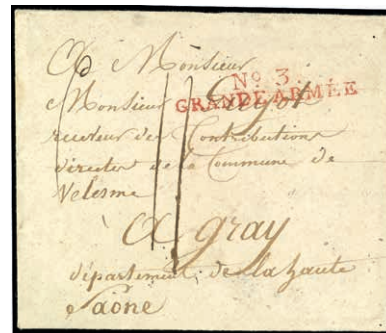 A Monsieur
Monsieur
No. 3.
GRANDE ARMÉE
receveur des Contributions
directes de la Commune de
Velesme
A gray
département de la haute
Saône